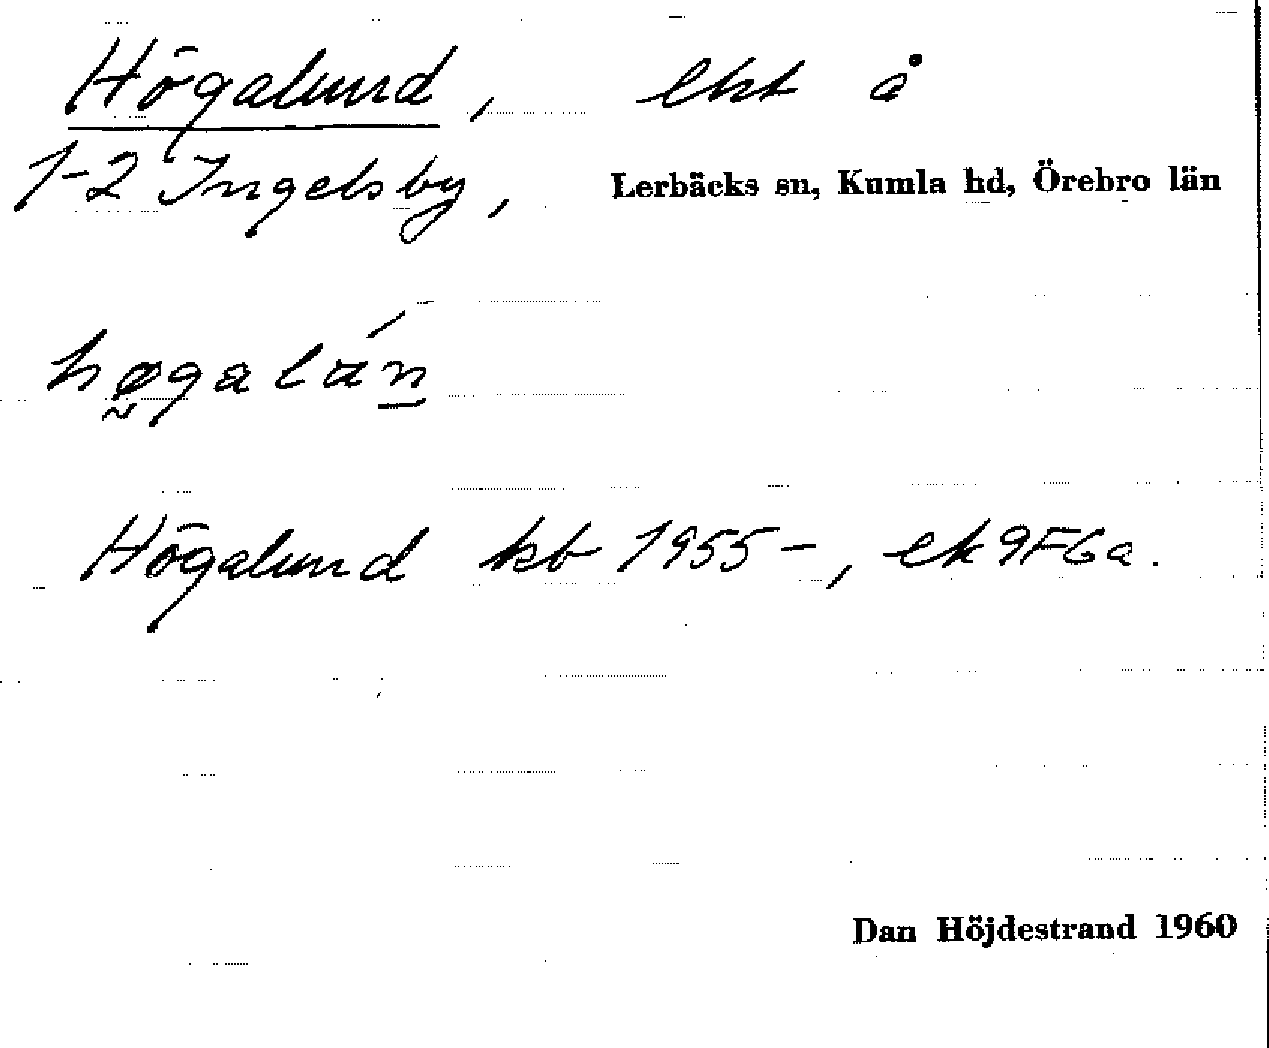 Högalund, lht å
1-2 Ingelsby, Lerbäcks sn, Kumla hd, Örebro län
høgalán
Högalund kb 1955-, ek 9F6a.
Dan Höjdestrand 1960